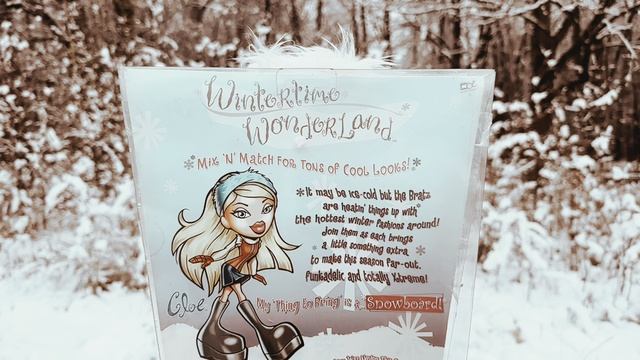 Wintertime
Wonderland
*Mix 'N' Match for Tons of Cool Looks!*
*It may be ice-cold but the Bratz
are heatin' things up with
the hottest winter fashions around!
Join them as each brings
a little something extra
to make this season far-out,
funkadelic and totally Xtreme!
Cloe
My 'Thing to Bring' is a Snowboard!